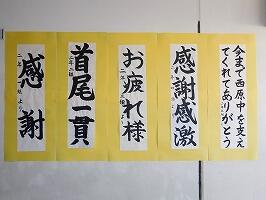 今まで西原中を支え
てくれてありがとう
感謝感激
お疲れ様
首尾一貫
感謝